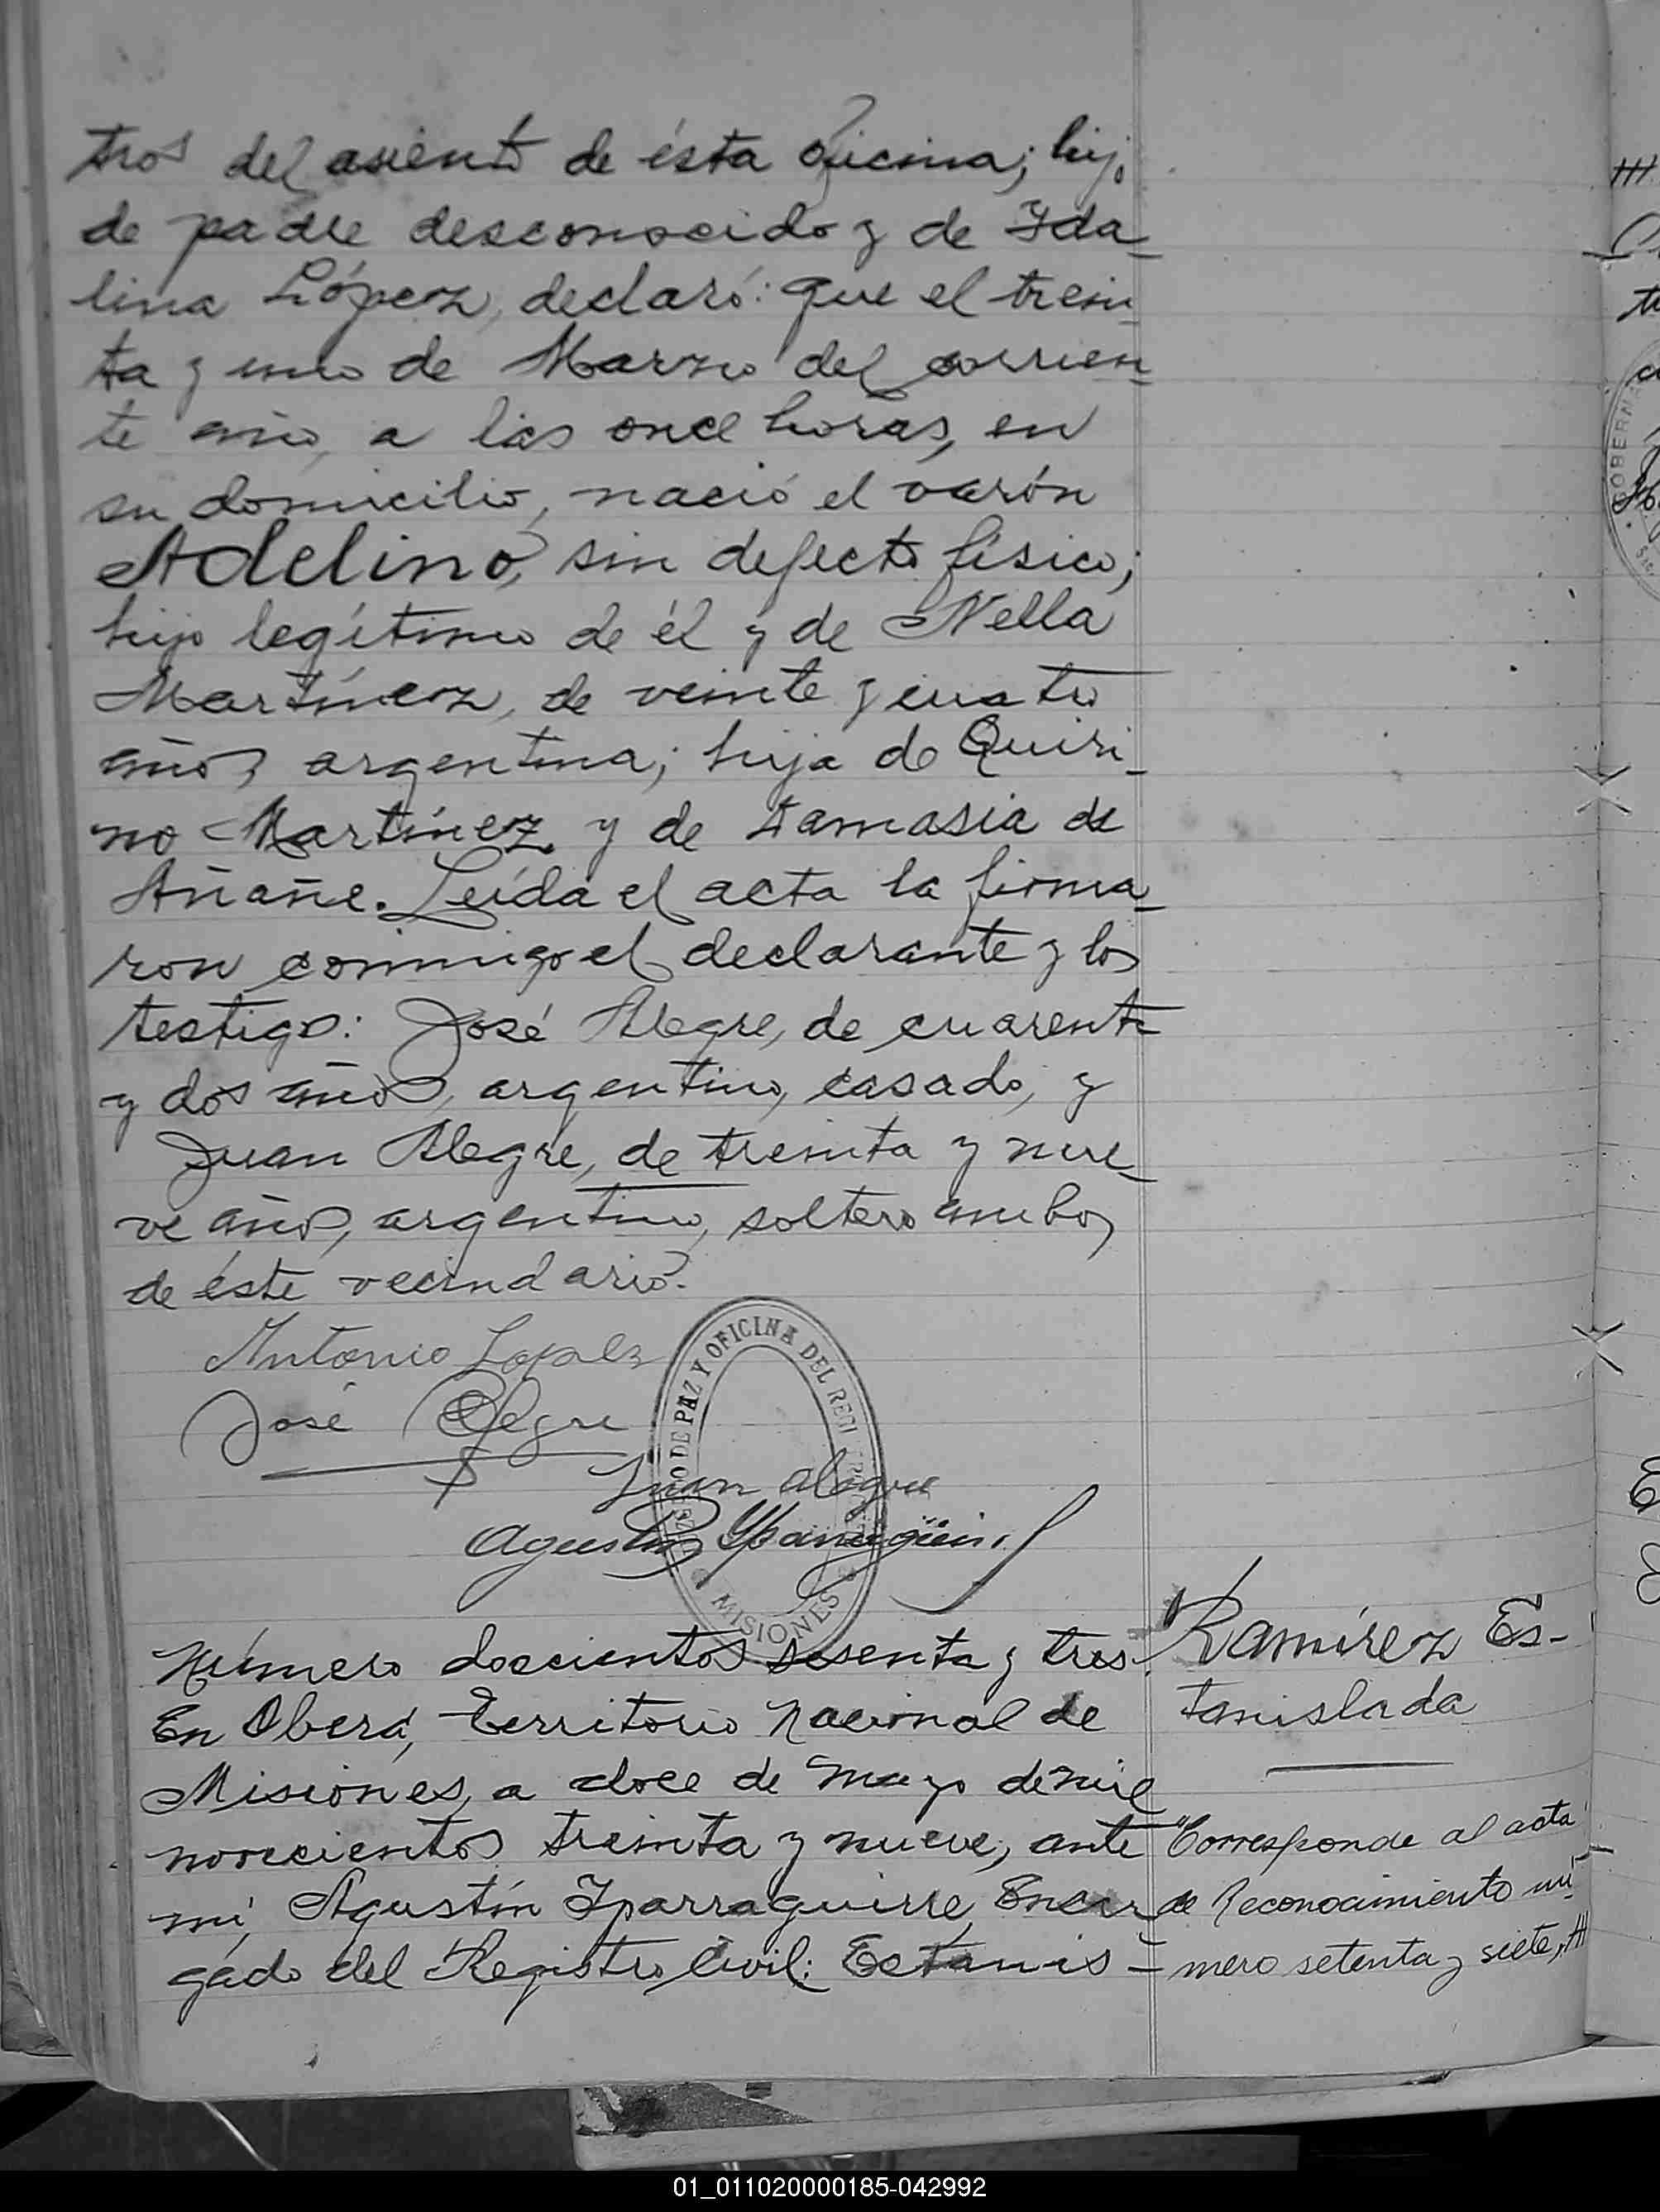 tros del asiento de ésta oficina; hijo
de padre desconocido y de Ida_
lina López, declaró: que el trein_
ta y uno de Marzo del corrien_
te año, a las once horas, en
su domicilio, nació el varón
Adelino, sin defecto físico;
hijo legítimo de él y de Nella
Martínez, de veinte y cuatro
años, argentina; hija de Quiri_
no Martínez y de Damasia de
Añañe. Leída el acta la firma_
ron conmigo el declarante y los
testigos: José Alegre, de cuarenta
y dos años, argentino, casado, y
Juan Alegre, de treinta y nue_
ve años, argentino, soltero ambos
de éste vecindario.
Antonio Lopez
José Alegre
Juan Alegre
Agustin Yparraguirre
DE PAZ Y OFICINA DEL REGI
MISIONES
Número doscientos sesenta y tres.
En Oberá, Territorio Nacional de
Misiones, a doce de mayo de mil
novecientos treinta y nueve, ante
mí, Agustín Iparraguirre, Encar_
gado del Registro Civil: Estanis_
Ramírez Es-
tanislada
"Corresponde al acta
de Reconocimiento nú_
mero setenta y siete, ///
GOBERNA
01_011020000185-042992